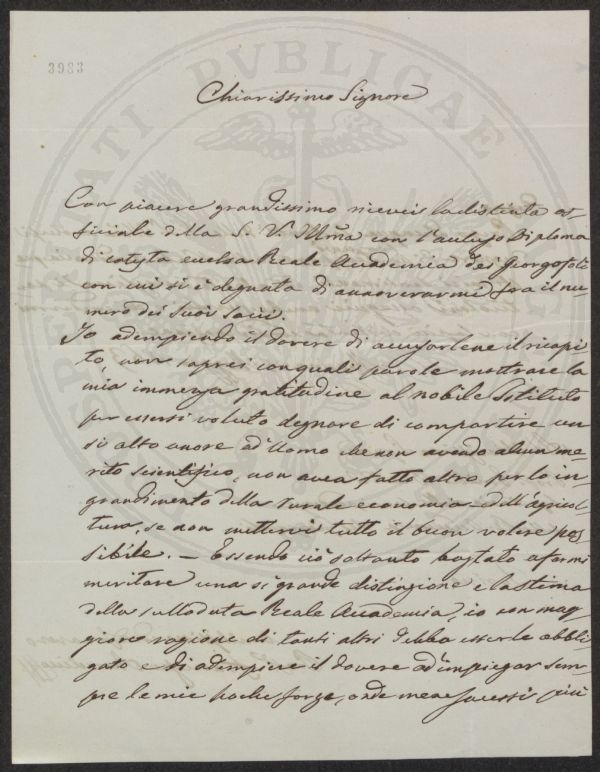 3983
PROSPERITATI PVBLICAE
Chiarissimo Signore
Con piacere grandissimo ricevei la distinta of-
ficiale della S. V. Illma con l'accluso Diploma
di cotesta eccelsa Reale Accademia dei Georgofoli
con cui si è degnata di annoverarmi fra il nu-
mero dei suoi socii.
Io adempiendo il dovere di accusarlene il ricapi-
to, non saprei con quali parole mostrare la
mia immensa gratitudine al nobile Istituto
per essersi voluto degnare di compartire un
sì alto onore ad Uomo che non avendo alcun me-
rito scientifico, non avea fatto altro per lo in-
grandimento della rurale economia e dell'agricol-
tura, se non mettervi tutto il buon volere pos-
sibile. – Essendo ciò soltanto bastato a farmi
meritare una sì grande distinzione e la stima
della sullodata Reale Accademia, io con mag-
giore ragione di tanti altri debbo esserle obbli-
gato e di adempiere il dovere ad impiegar sem-
pre le mie poche forze, onde me ne facessi più